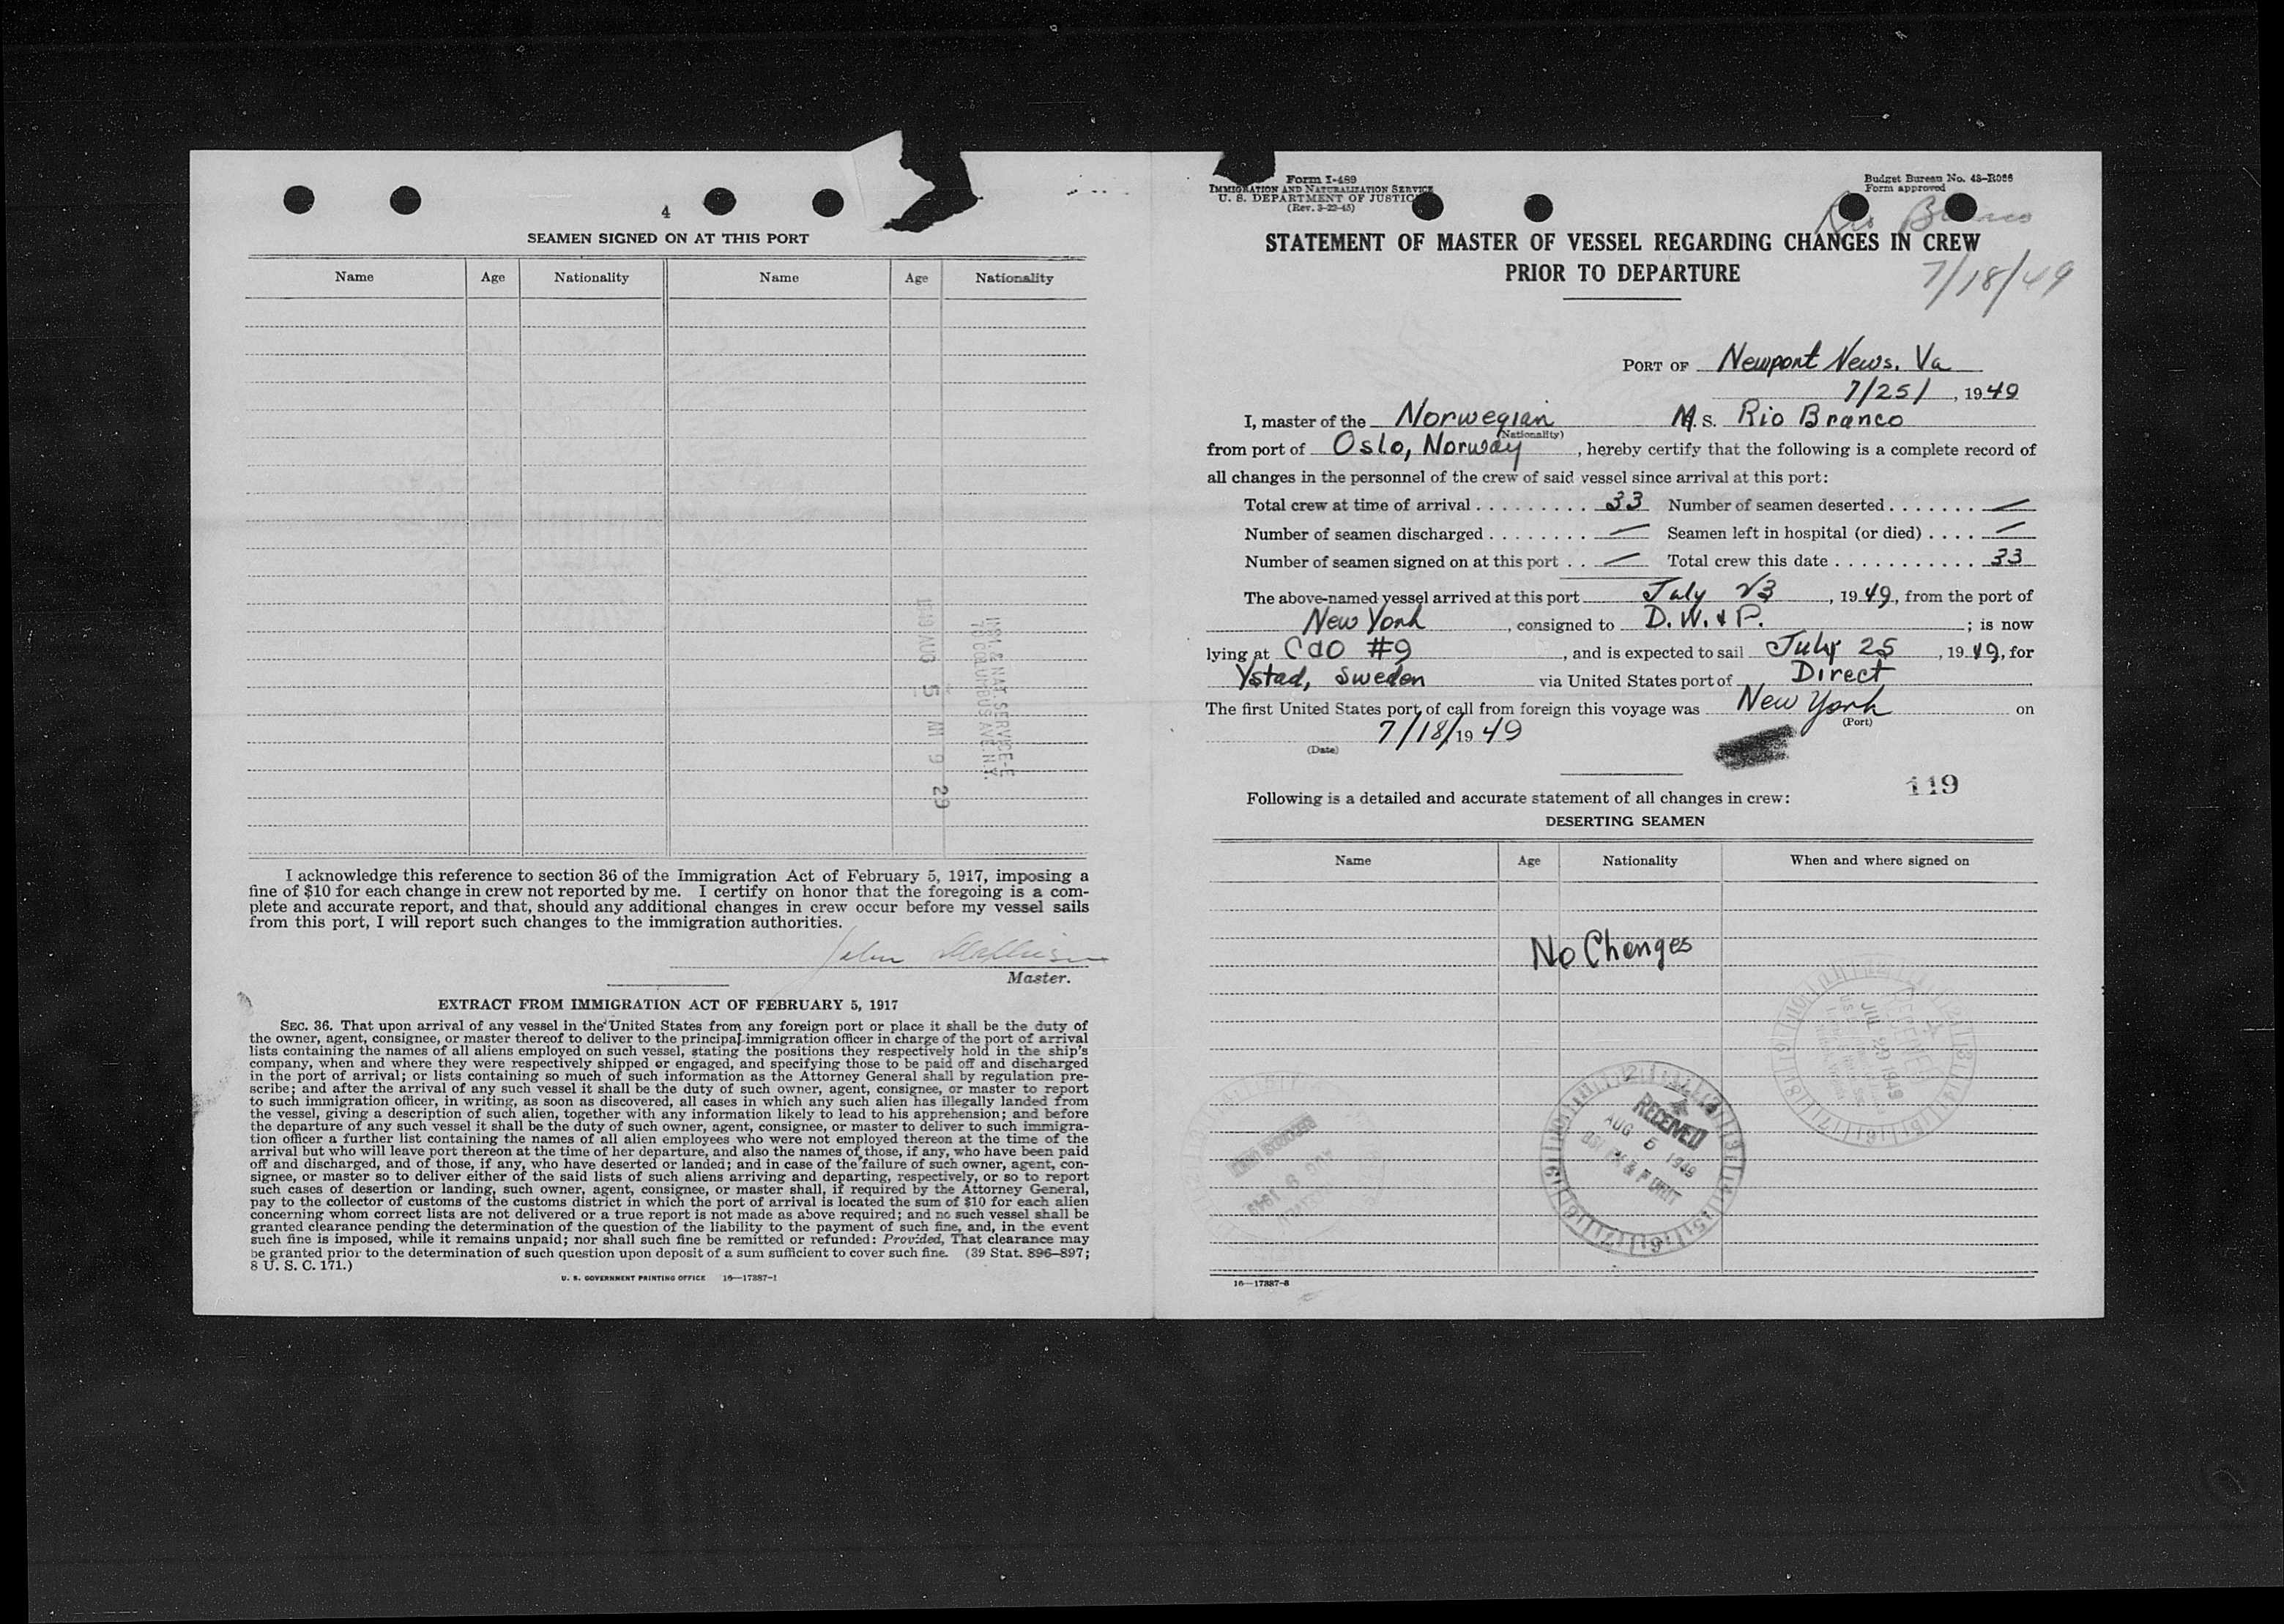 4
SEAMEN SIGNED ON AT THIS PORT
Name Age Nationality Name Age Nationality
1949 AUG 5 AM 9 29
IMM. & NAT. SERVICE-E
70 COLUMBUS AVE. N.Y.
I acknowledge this reference to section 36 of the Immigration Act of February 5, 1917, imposing a
fine of $10 for each change in crew not reported by me. I certify on honor that the foregoing is a com-
plete and accurate report, and that, should any additional changes in crew occur before my vessel sails
from this port, I will report such changes to the immigration authorities.
John
Master.
EXTRACT FROM IMMIGRATION ACT OF FEBRUARY 5, 1917
SEC. 36. That upon arrival of any vessel in the United States from any foreign port or place it shall be the duty of
the owner, agent, consignee, or master thereof to deliver to the principal immigration officer in charge of the port of arrival
lists containing the names of all aliens employed on such vessel, stating the positions they respectively hold in the ship's
company, when and where they were respectively shipped or engaged, and specifying those to be paid off and discharged
in the port of arrival; or lists containing so much of such information as the Attorney General shall by regulation pre-
scribe; and after the arrival of any such vessel it shall be the duty of such owner, agent, consignee, or master to report
to such immigration officer, in writing, as soon as discovered, all cases in which any such alien has illegally landed from
the vessel, giving a description of such alien, together with any information likely to lead to his apprehension; and before
the departure of any such vessel it shall be the duty of such owner, agent, consignee, or master to deliver to such immigra-
tion officer a further list containing the names of all alien employees who were not employed thereon at the time of the
arrival but who will leave port thereon at the time of her departure, and also the names of those, if any, who have been paid
off and discharged, and of those, if any, who have deserted or landed; and in case of the failure of such owner, agent, con-
signee, or master so to deliver either of the said lists of such aliens arriving and departing, respectively, or so to report
such cases of desertion or landing, such owner, agent, consignee, or master shall, if required by the Attorney General,
pay to the collector of customs of the customs district in which the port of arrival is located the sum of $10 for each alien
concerning whom correct lists are not delivered or a true report is not made as above required; and no such vessel shall be
granted clearance pending the determination of the question of the liability to the payment of such fine, and, in the event
such fine is imposed, while it remains unpaid; nor shall such fine be remitted or refunded: Provided, That clearance may
be granted prior to the determination of such question upon deposit of a sum sufficient to cover such fine. (39 Stat. 896–897;
8 U. S. C. 171.)
U. S. GOVERNMENT PRINTING OFFICE 16—17887-1
Form I-489
IMMIGRATION AND NATURALIZATION SERVICE
U. S. DEPARTMENT OF JUSTICE
(Rev. 3-22-45)
Budget Bureau No. 43-R066
Form approved
Rio Branco
7/18/49
STATEMENT OF MASTER OF VESSEL REGARDING CHANGES IN CREW
PRIOR TO DEPARTURE
PORT OF Newport News. Va
7/25/, 1949
I, master of the Norwegian M. S. Rio Branco
(Nationality)
from port of Oslo, Norway, hereby certify that the following is a complete record of
all changes in the personnel of the crew of said vessel since arrival at this port:
Total crew at time of arrival . . . . . . . . . 33 Number of seamen deserted . . . . . . . —
Number of seamen discharged . . . . . . . . — Seamen left in hospital (or died) . . . . —
Number of seamen signed on at this port . . — Total crew this date . . . . . . . . . . . . 33
The above-named vessel arrived at this port July 23, 1949, from the port of
New York, consigned to D. W. & P. ; is now
lying at C&O #9, and is expected to sail July 25, 1949, for
Ystad, Sweden via United States port of Direct
The first United States port of call from foreign this voyage was New York on
(Port)
7/18/1949
(Date)
119
Following is a detailed and accurate statement of all changes in crew:
DESERTING SEAMEN
Name Age Nationality When and where signed on
No Changes
RECEIVED
JUL 29 1949
RECEIVED
AUG 5 1949
16—17887-8